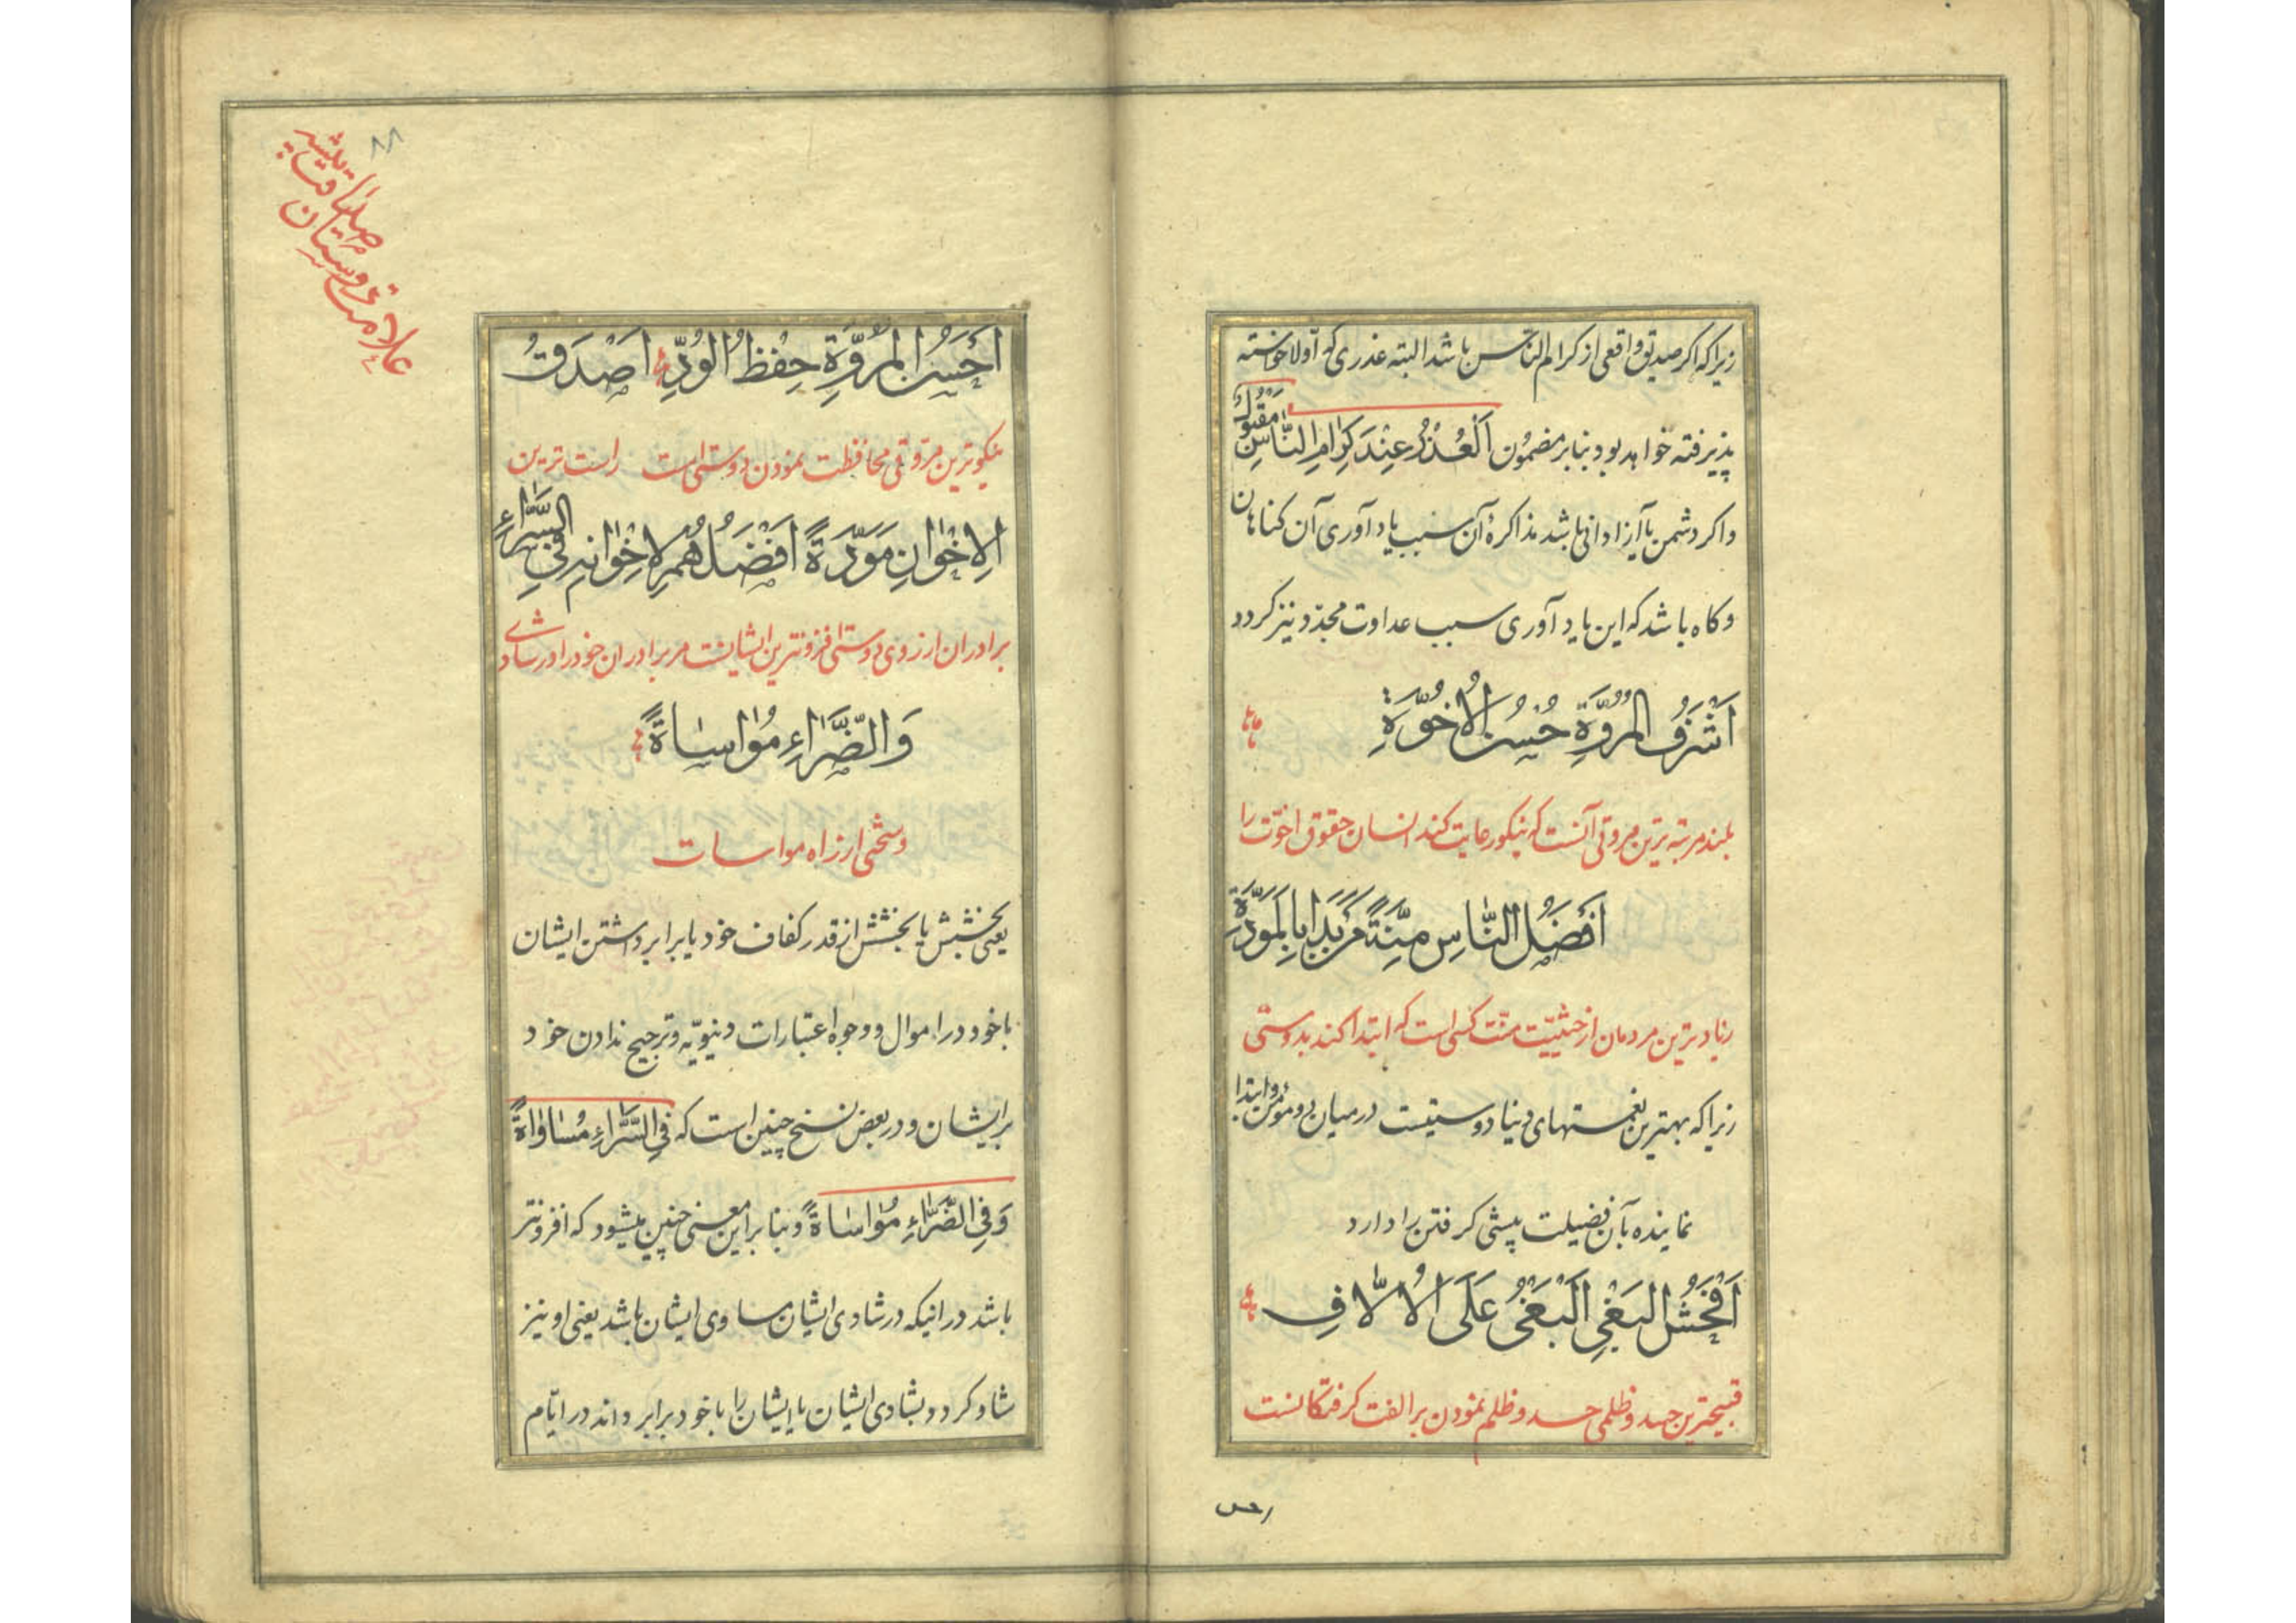 زیرا که اکر صدیق واقعی از کرام الناس باشد البته عذری که اولا خواسته
پذیرفته خواهد بود بنا بر مضمون اَلْعُذْرُ عِنْدَ کِرامِ النّاسِ مَقْبُولٌ
واکر دشمن یا آزادانی باشد مذاکرهٔ آن سبب یاد آوری آن کناهان
و کاه باشد که این یاد آوری سبب عداوت مجدّد نیز کردد
اَشْرَفُ المُرُوَّةِ حُسْنُ الْاُخُوَّةِ
بلند مرتبه ترین مروتی آنست که نیکو رعایت کند انسان حقوق اخوّت را
اَفْضَلُ النّاسِ مِنَّةً مَنْ بَدَأَ بِالْمَوَدَّةِ
زیاد ترین مردمان از حیثیّت منّت کسی است که ابتدا کند بدوستی
زیرا که بهترین نعمتهای دنیا دوستیست در میان دو مؤمن و ابتدا
نماینده بآن فضیلت پیشی کرفتن را دارد
اَفْحَشُ البَغْیِ اَلْبَغْیُ عَلَی الْاُلّافِ
قبیحترین حسد و ظلمی حسد و ظلم نمودن بر الفت کرفتکانست
احس
۸۸
علامت دوستان
صداقت پیشه
اَحْسَنُ المُرُوَّةِ حِفْظُ الْوُدِّ اَصْدَقُ
نیکوترین مروّتی محافظت نمودن دوستی است راست ترین
الْاِخْوانِ مَوَدَّةً اَفْضَلُهُمْ لِاِخْوانِهِ فِی السَّرّاءِ
برادران از روی دوستی افزونترین ایشانست مر برادران خود را در شادی
وَالضَّرّاءِ مُواساةً
و سختی از راه مواسات
یعنی بخشش یا بخشش از قدر کفاف خود یا برابر داشتن ایشان
با خود در اموال و وجوه اعتبارات دنیویّه و ترجیح ندادن خود
بر ایشان و در بعض نسخ چنین است که فِی السَّرّاءِ مُساواةً
وَفِی الضَّرّاءِ مُواساةً و بنا بر این معنی چنین میشود که افزونتر
باشد در اینکه در شادی ایشان مساوی ایشان باشد یعنی او نیز
شاد کردد بشادی ایشان یا ایشان را با خود برابر داند در ایّام